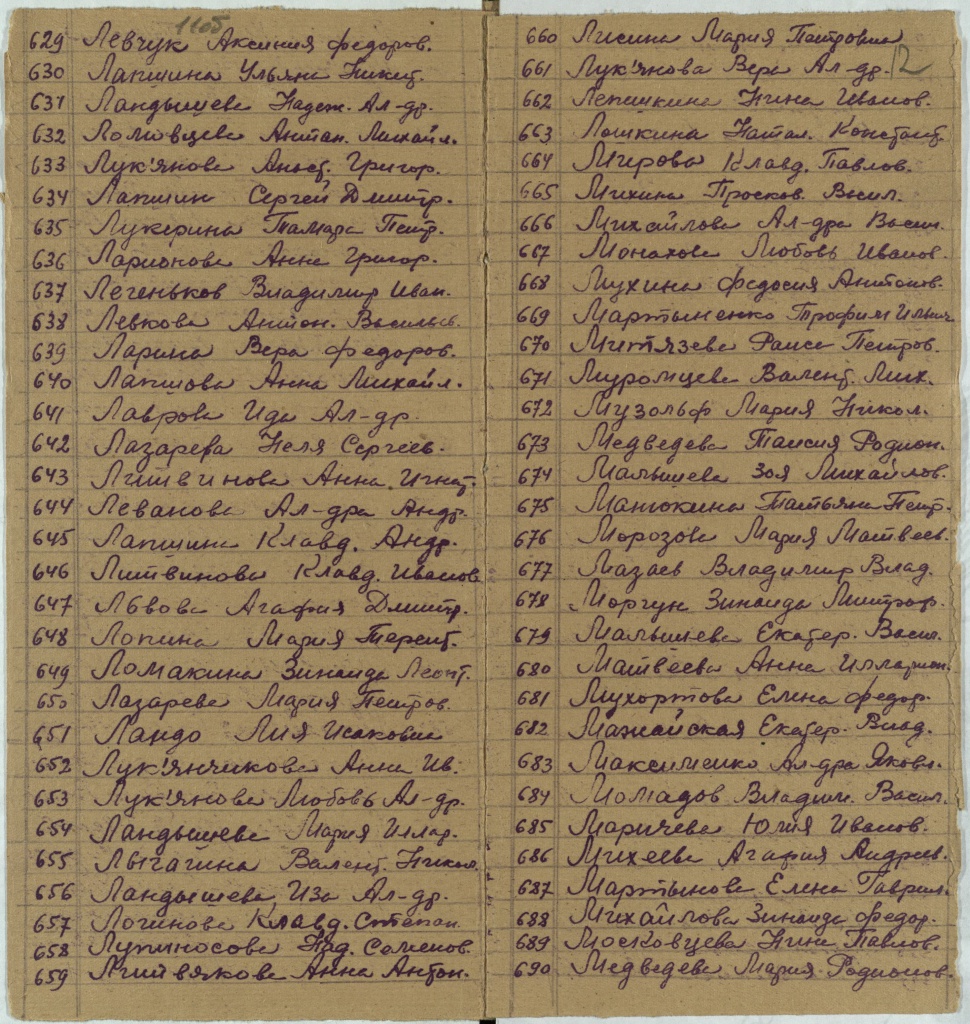 1105
629 Левчук Аксиния федоров.
630 Лапшина Ульяна Никит.
631 Ландышева Надеж. Ал-др.
632 Ломовцева Антан. Михайл.
633 Лук'янова Анаст. Григор.
634 Лапшин Сергей Дмитр.
635 Лукерина Тамара Петр.
636 Ларионова Анна Григор.
637 Легеньков Владимир Иван.
638 Левкова Антон. Васильев.
639 Ларина Вера федоров.
640 Лапшова Анна Михайл.
641 Лаврова Ида Ал-др.
642 Лазарева Неля Сергеев.
643 Литвинова Анна Игнат.
644 Леванова Ал-дра Андр.
645 Лапшина Клавд. Андр.
646 Литвинова Клавд. Иванов.
647 Львова Агафия Дмитр.
648 Лопина Мария Терент.
649 Ломакина Зинаида Леонт.
650 Лазарева Мария Петров.
651 Ландо Лия Исаковна
652 Лук'янчикова Анна Ив.
653 Лук'янова Любовь Ал-др.
654 Ландышева Мария Иллар.
655 Лычагина Валент. Никол.
656 Ландышева Иза Ал-др.
657 Логинова Клавд. Степан.
658 Лупиносова Над. Семенов.
659 Литвякова Анна Антон.
12
660 Лисина Мария Петровна
661 Лук'янова Вера Ал-др.
662 Лепишкина Нина Иванов.
663 Лошкина Натал. Констант.
664 Мирова Клавд. Павлов.
665 Михина Просков. Васил.
666 Михайлова Ал-дра Васил.
667 Монахова Любовь Иванов.
668 Мухина Федосия Антонов.
669 Мартыненко Трофим Ильич
670 Митязева Раиса Петров.
671 Муромцева Валент. Мих.
672 Музольф Мария Никол.
673 Медведева Таисия Родион.
674 Малышева Зоя Михайлов.
675 Манюкина Татьяна Петр.
676 Морозова Мария Матвеев.
677 Мазаев Владимир Влад.
678 Моргун Зинаида Митроф.
679 Малышева Екатер. Васил.
680 Матвеева Анна Илларион.
681 Мухортова Елена федор.
682 Можайская Екатер. Влад.
683 Максименко Ал-дра Яковл.
684 Момадов Владим. Васил.
685 Маричева Юлия Иванов.
686 Михеева Агафия Андреев.
687 Мартынова Елена Гаврил.
688 Михайлова Зинаида федор.
689 Московцева Нина Павлов.
690 Медведева Мария Родионов.